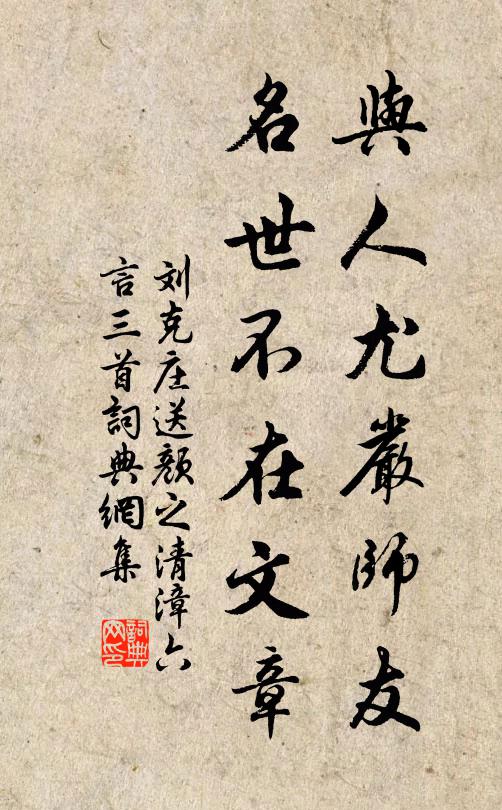 與人尤嚴師友
名世不在文章
刘克庄送顏之清漳六
言三首詞典網集
詞典网印